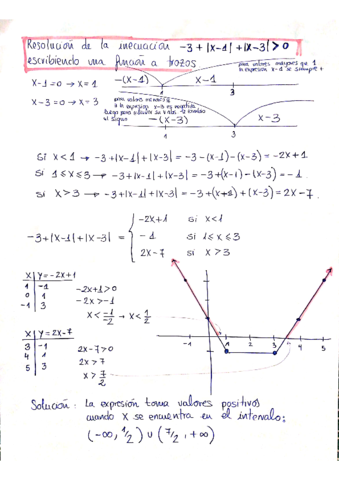 Resolución de la inecuación -3+|x-1|+|x-3|>0
escribiendo una función a trozos
para valores mayores que 1
la expresión x-1 es siempre +
x-1=0 → x=1
-(x-1)
x-1
1
3
x-3=0 → x=3
para valores menores
a la expresión x-3 es negativa
-(x-3)
x-3
Si x<1 → -3+|x-1|+|x-3| = -3-(x-1)-(x-3) = -2x+1
Si 1≤x≤3 → -3+|x-1|+|x-3| = -3+(x-1)-(x-3) = -1
Si x>3 → -3+|x-1|+|x-3| = -3+(x-1)+(x-3) = 2x-7
-3+|x-1|+|x-3| =
-2x+1 si x<1
-1 si 1≤x≤3
2x-7 si x>3
x | y=-2x+1
1 | -1
0 | 1
-1 | 3
-2x+1>0
-2x>-1
x<-1/-2 → x<1/2
x | y=2x-7
3 | -1
4 | 1
5 | 3
2x-7>0
2x>7
x>7/2
1 3 4 5
Solución: La expresión toma valores positivos
cuando x se encuentra en el intervalo:
(-∞, 1/2) ∪ (7/2, +∞)